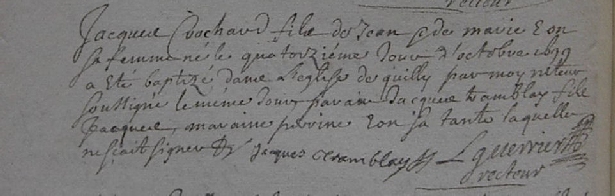 recteur
Jacques Rochard fils de Jean & de marie Eon
sa femme né le quatorziéme Jour d'octobre 1699
a Eté baptizé dans l'eglise de quilly par moy recteur
soussigné le méme Jour parain Jacques tramblay fils
Jacques, maraine perrine Eon sa tante laquelle
ne sçait signer Jacques tramblay L guerrier
recteur